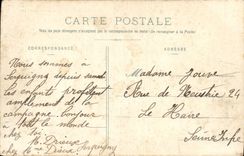 CARTE POSTALE
CORRESPONDANCE
ADRESSE
Nous sommes à
Serquigny depuis samedi
les enfants profitent
amplement de la
campagne, bonjour
à tout le monde
chez
M. Drieux
chez Mme Drieux Serquigny
Madame Jouve
Rue de 24
Le Havre
Seine Infre